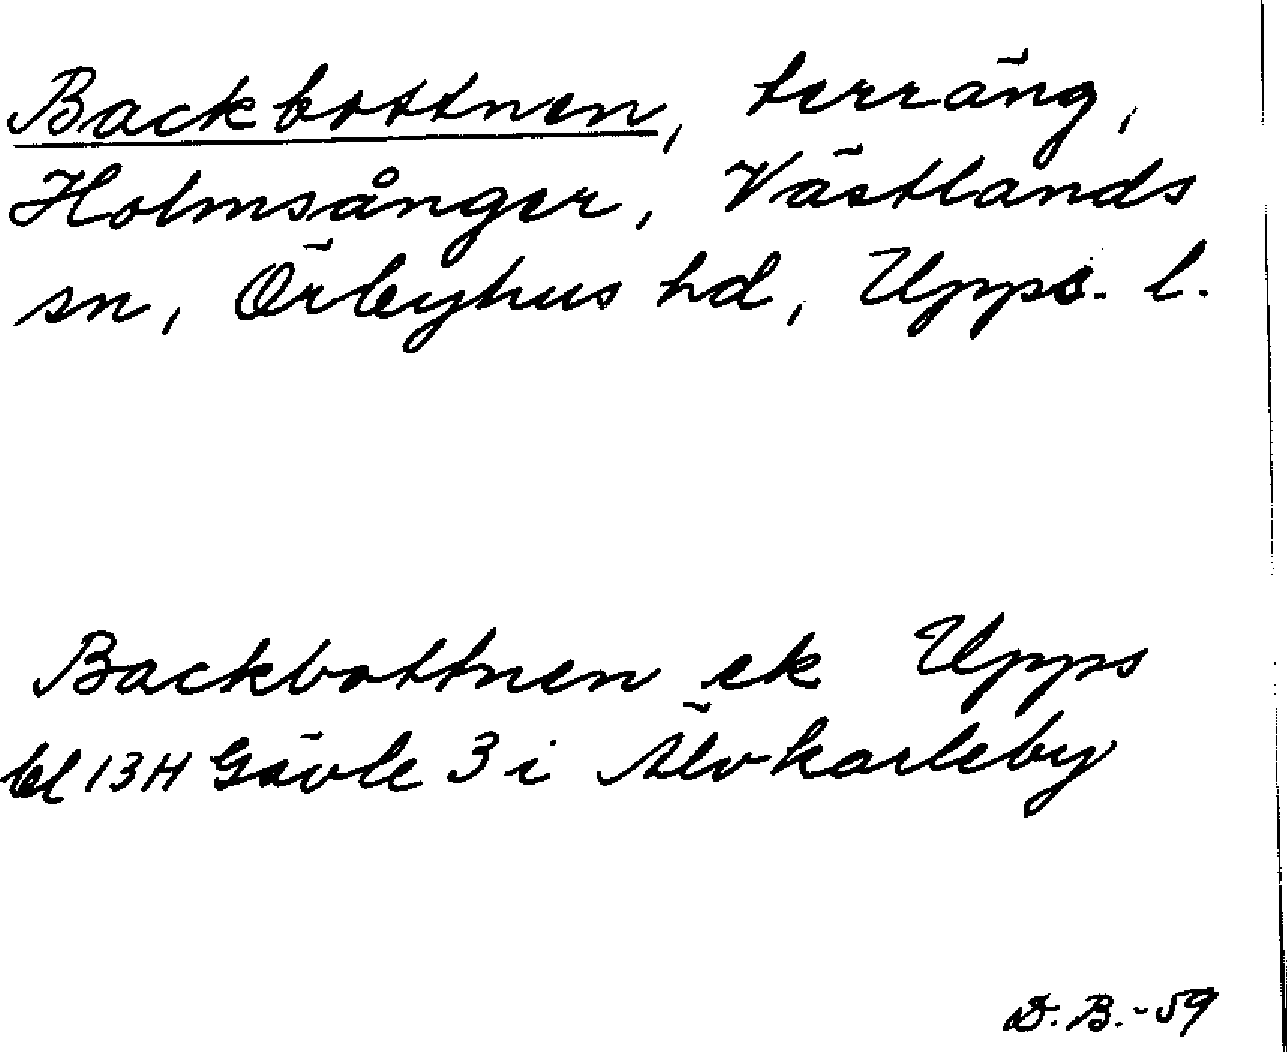 Backbottnen, terräng,
Holmsånger, Västlands
sn, Örbyhus hd, Upps. l.
Backbottnen ek Upps
bl 13H Gävle 3 i Älvkarleby
D. B. -59